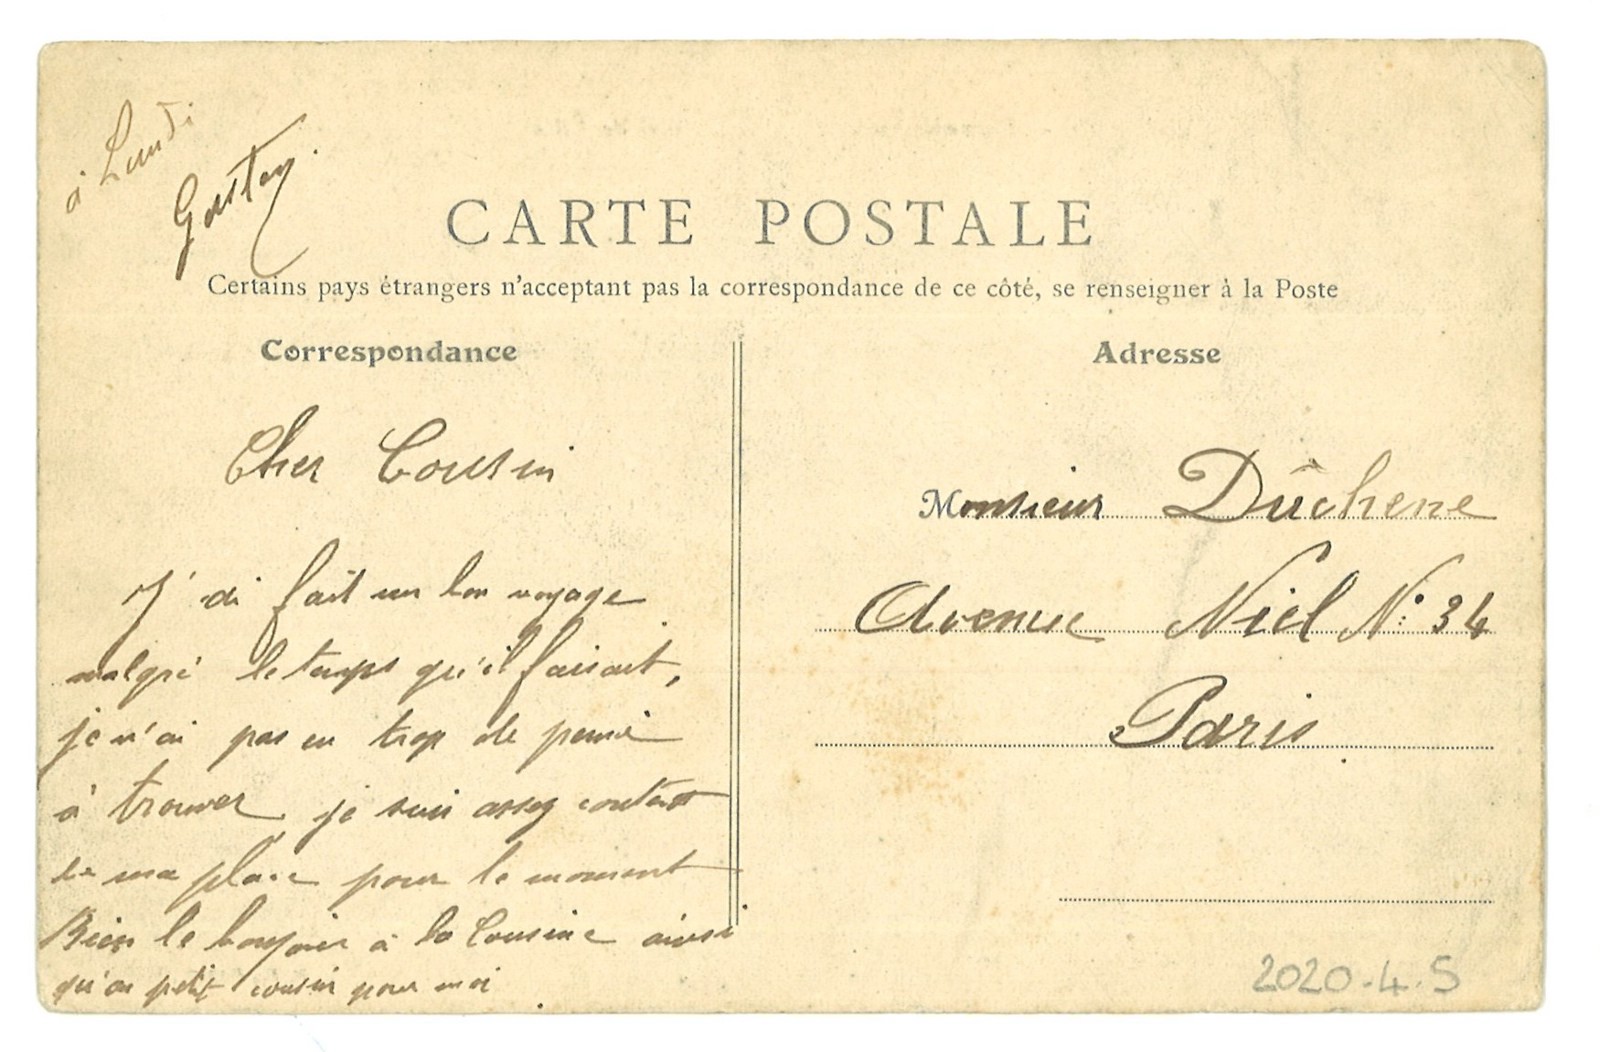 à Lundi
Gaston
CARTE POSTALE
Certains pays étrangers n'acceptant pas la correspondance de ce côté, se renseigner à la Poste
Correspondance
Adresse
Cher Cousin
J'ai fait un bon voyage
malgré le temps qu'il faisait,
je n'ai pas eu trop de peine
à trouver je suis assez content
de ma place pour le moment
Bien le bonjour à la Cousine ainsi
qu'au petit cousin pour moi
Monsieur Dûchene
Avenue Niel N° 34
Paris
2020.4.5